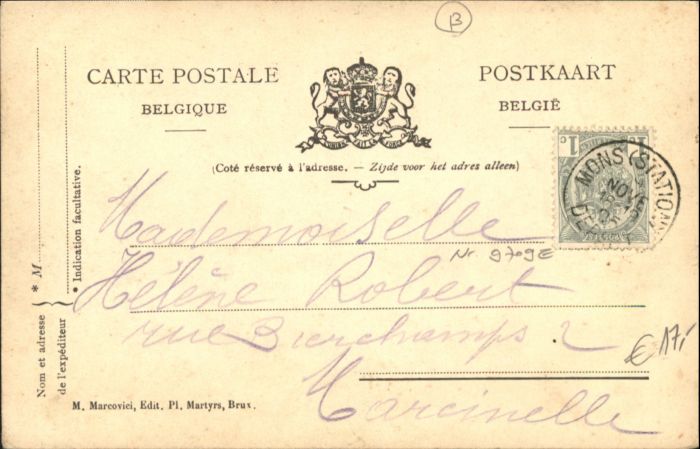 B
CARTE POSTALE
BELGIQUE
POSTKAART
BELGIË
L'UNION FAIT LA FORCE
(Coté réservé à l'adresse. – Zijde voor het adres alleen)
1c 1c
MONS (STATION)
NOV
Mademoiselle
Nr. 9709E
Hélène Robert
rue 2
€ 17,-
Marcinelle
* M
* Indication facultative.
Nom et adresse
de l'expéditeur
M. Marcovici, Edit. Pl. Martyrs, Brux.